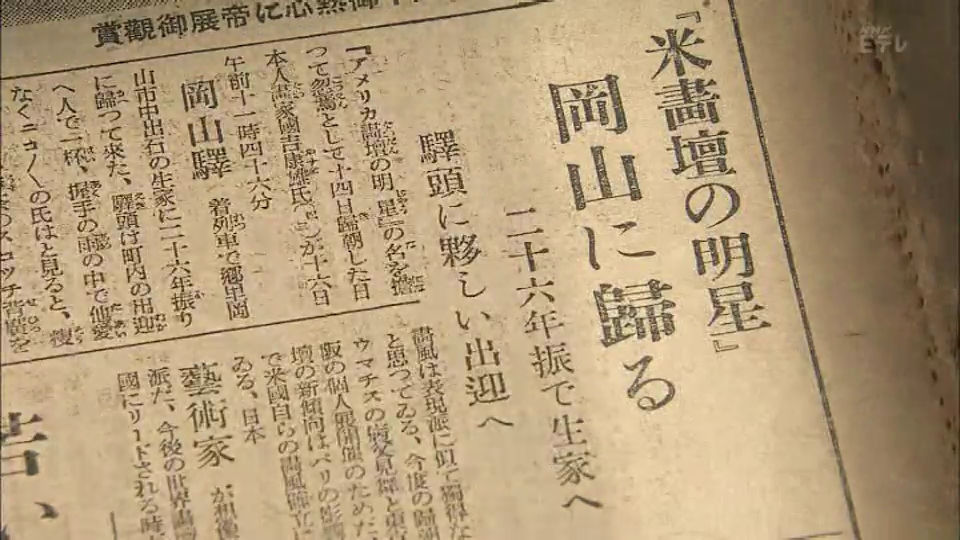 賞觀御展帝に心熱御
日テレ
『米畫壇の明星』
岡山に歸る
二十六年振で生家へ
驛頭に夥しい出迎へ
『アメリカ畫壇の明星』の名を擔
つて忽焉として十四日歸朝した日
本人畫家國吉康雄氏が十六日
午前十一時四十六分
岡山驛
着列車で郷里岡
山市中出石の生家に二十六年振り
に歸つて來た、驛頭は町内の出迎
へ人で一杯、握手の雨の中で
なくニコ〳〵の氏はと見ると、
スコッチ背廣を
畫風は表現派に似て獨得な
と思つてゐる、今度の歸朝
ウマチスの
阪の個人展開催のため
壇の新傾向はパリの影響
で米國自らの畫風確立に
ゐる、日本
藝術家
派だ、今後の世界畫
國にリードされる時